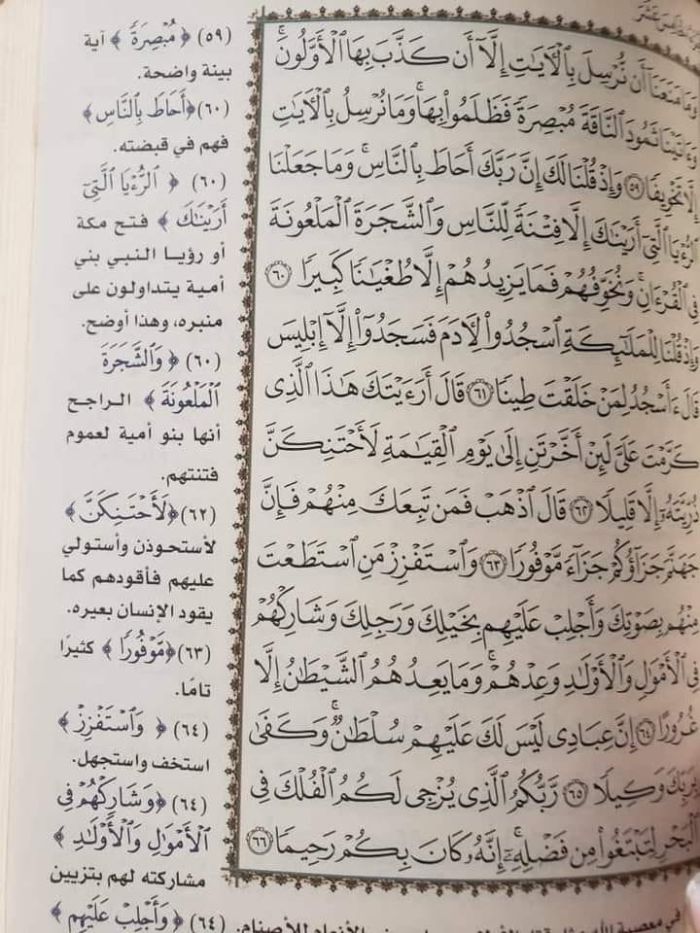 وَمَا مَنَعَنَا أَن نُّرْسِلَ بِالْآيَاتِ إِلَّا أَن كَذَّبَ بِهَا الْأَوَّلُونَ ۚ
وَءَاتَيْنَا ثَمُودَ النَّاقَةَ مُبْصِرَةً فَظَلَمُوا بِهَا ۚ وَمَا نُرْسِلُ بِالْآيَاتِ
إِلَّا تَخْوِيفًا ٥٩ وَإِذْ قُلْنَا لَكَ إِنَّ رَبَّكَ أَحَاطَ بِالنَّاسِ ۚ وَمَا جَعَلْنَا
الرُّءْيَا الَّتِي أَرَيْنَاكَ إِلَّا فِتْنَةً لِّلنَّاسِ وَالشَّجَرَةَ الْمَلْعُونَةَ
فِي الْقُرْءَانِ ۚ وَنُخَوِّفُهُمْ فَمَا يَزِيدُهُمْ إِلَّا طُغْيَانًا كَبِيرًا ٦٠
وَإِذْ قُلْنَا لِلْمَلَائِكَةِ اسْجُدُوا لِآدَمَ فَسَجَدُوا إِلَّا إِبْلِيسَ
قَالَ ءَأَسْجُدُ لِمَنْ خَلَقْتَ طِينًا ٦١ قَالَ أَرَءَيْتَكَ هَٰذَا الَّذِي
كَرَّمْتَ عَلَيَّ لَئِنْ أَخَّرْتَنِ إِلَىٰ يَوْمِ الْقِيَامَةِ لَأَحْتَنِكَنَّ
ذُرِّيَّتَهُ إِلَّا قَلِيلًا ٦٢ قَالَ اذْهَبْ فَمَن تَبِعَكَ مِنْهُمْ فَإِنَّ
جَهَنَّمَ جَزَاؤُكُمْ جَزَاءً مَّوْفُورًا ٦٣ وَاسْتَفْزِزْ مَنِ اسْتَطَعْتَ
مِنْهُم بِصَوْتِكَ وَأَجْلِبْ عَلَيْهِم بِخَيْلِكَ وَرَجِلِكَ وَشَارِكْهُمْ
فِي الْأَمْوَالِ وَالْأَوْلَادِ وَعِدْهُمْ ۚ وَمَا يَعِدُهُمُ الشَّيْطَانُ إِلَّا
غُرُورًا ٦٤ إِنَّ عِبَادِي لَيْسَ لَكَ عَلَيْهِمْ سُلْطَانٌ ۚ وَكَفَىٰ
بِرَبِّكَ وَكِيلًا ٦٥ رَّبُّكُمُ الَّذِي يُزْجِي لَكُمُ الْفُلْكَ فِي
الْبَحْرِ لِتَبْتَغُوا مِن فَضْلِهِ ۚ إِنَّهُ كَانَ بِكُمْ رَحِيمًا ٦٦
(٥٩) ﴿مُبْصِرَةً﴾ آية
بينة واضحة.
(٦٠) ﴿أَحَاطَ بِالنَّاسِ﴾
فهم في قبضته.
(٦٠) ﴿الرُّءْيَا الَّتِي
أَرَيْنَاكَ﴾ فتح مكة
أو رؤيا النبي بني
أمية يتداولون على
منبره، وهذا أوضح.
(٦٠) ﴿وَالشَّجَرَةَ
الْمَلْعُونَةَ﴾ الراجح
أنها بنو أمية لعموم
فتنتهم.
(٦٢) ﴿لَأَحْتَنِكَنَّ﴾
لأستحوذن وأستولي
عليهم فأقودهم كما
يقود الإنسان بعيره.
(٦٣) ﴿مَوْفُورًا﴾ كثيرًا
تامًا.
(٦٤) ﴿وَاسْتَفْزِزْ﴾
استخف واستجهل.
(٦٤) ﴿وَشَارِكْهُمْ فِي
الْأَمْوَالِ وَالْأَوْلَادِ﴾
مشاركته لهم بتزيين
(٦٤) ﴿وَأَجْلِبْ عَلَيْهِم﴾